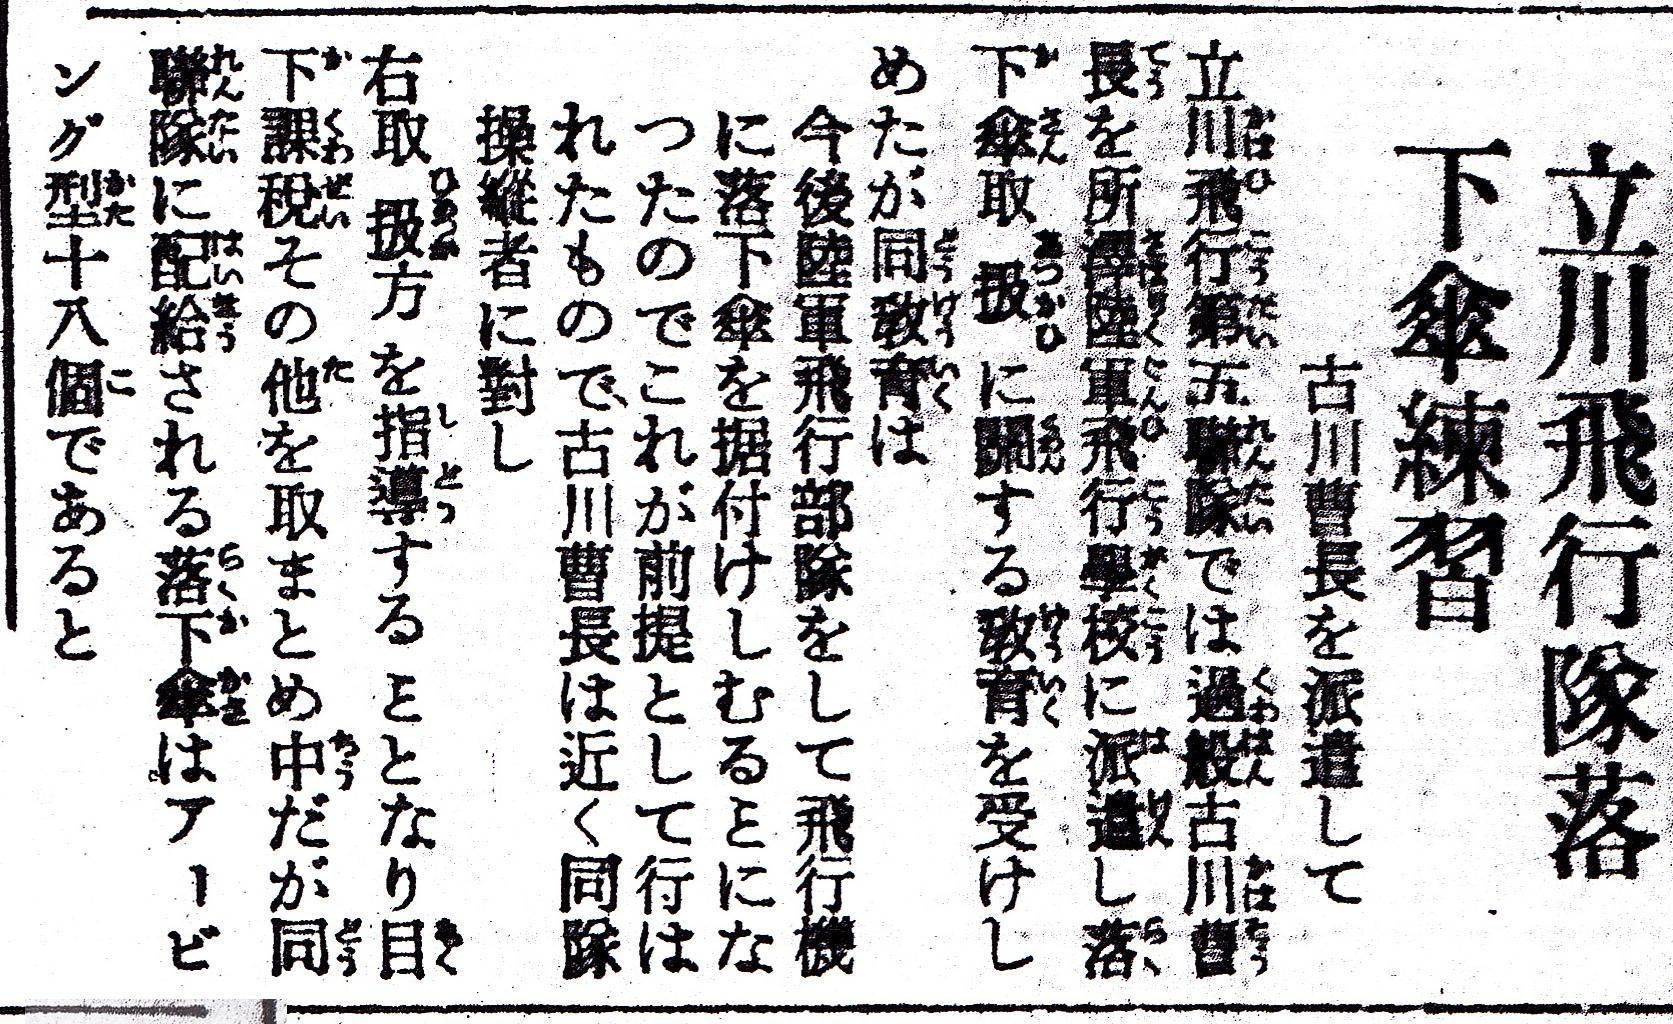 立川飛行隊落
下傘練習
古川曹長を派遣して
立川飛行第五聯隊では過般古川曹
長を所澤陸軍飛行學校に派遣し落
下傘取扱に関する教育を受けし
めたが同教育は
今後陸軍飛行部隊をして飛行機
に落下傘を据付けしむるヿにな
つたのでこれが前提として行は
れたもので、古川曹長は近く同隊
操縦者に對し
右取扱方を指導するヿとなり目
下課税その他を取まとめ中だが同
聯隊に配給される落下傘はアービ
ング型十八個であると